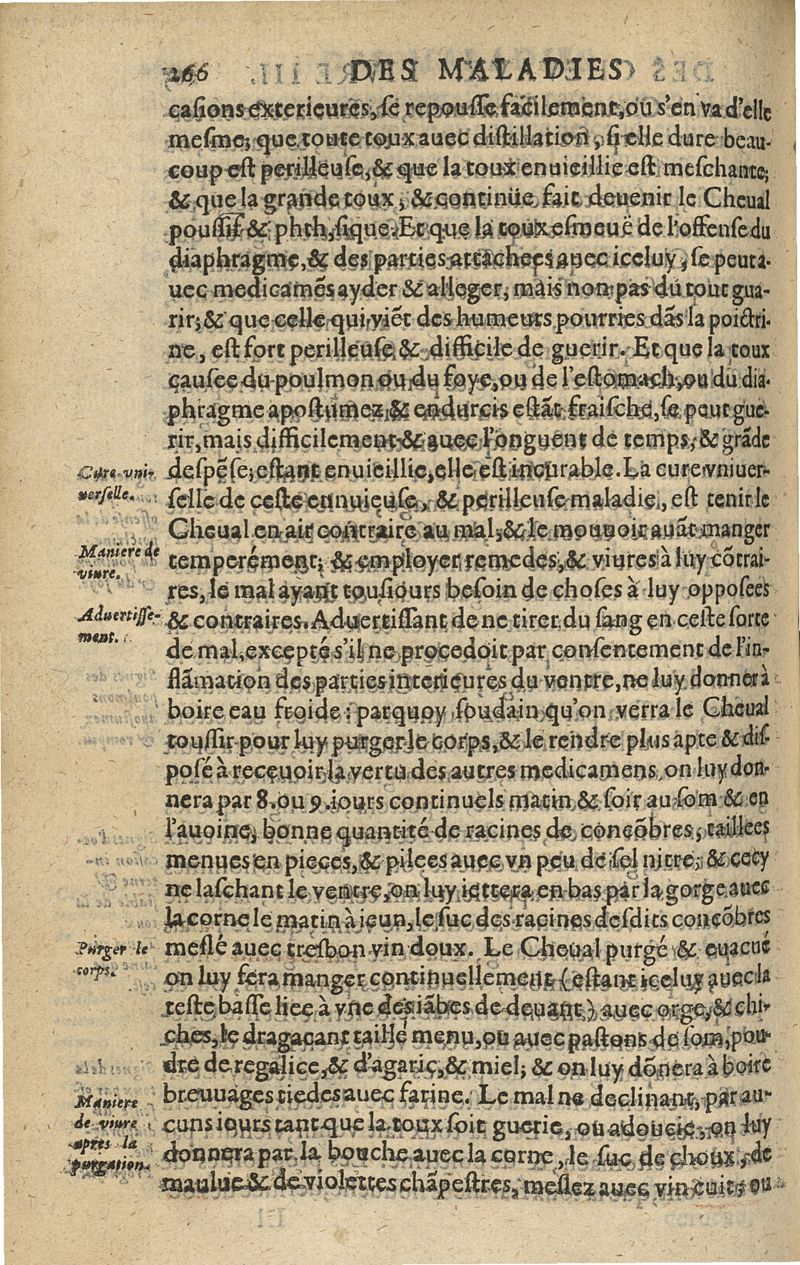 266 DES MALADIES
casions exterieures, se repousse facilement, ou s'en va d'elle
mesme; que toute toux auec distillation, si elle dure beau-
coup est perilleuse, & que la toux enuieillie est meschante;
& que la grande toux, & continüe fait deuenir le Cheual
poussif & phthisique. Et que la toux esmeuë de l'offense du
diaphragme, & des parties attachees auec iceluy, se peut a-
uec medicamẽs ayder & alleger, mais non pas du tout gua-
rir; & que celle qui viẽt des humeurs pourries dãs la poictri-
ne, est fort perilleuse & difficile de guerir. Et que la toux
causee du poulmon ou du foye, ou de l'estomach, ou du dia-
phragme apostumez, & endurcis estãt fraische, se peut gue-
rir, mais difficilement & auec l'onguent de temps, & grãde
Cure vni-
verselle.
despẽse; estant enuieillie, elle est incurable. La cure vniuer-
selle de ceste ennuieuse, & perilleuse maladie, est tenir le
Cheual en air contraire au mal, & le mouuoir auãt manger
Maniere de
viure.
temperément; & employer remedes, & viures à luy cõtrai-
res, le mal ayant tousiours besoin de choses à luy opposees
Aduertisse-
ment.
& contraires. Aduertissant de ne tirer du sang en ceste sorte
de mal, excepté s'il ne procedoit par consentement de l'in-
flãmation des parties interieures du ventre, ne luy donner à
boire eau froide: parquoy soudain qu'on verra le Cheual
toussir pour luy purger le corps, & le rendre plus apte & dis-
posé à receuoir la vertu des autres medicamens, on luy don-
nera par 8. ou 9. iours continuels matin & soir au som & en
l'auoine, bonne quantité de racines de concõbres, taillees
menues en pieces, & pilees auec vn peu de sel nitre; & cecy
ne laschant le ventre, on luy iettera en bas par la gorge auec
la corne le matin à ieun, le suc des racines desdits concõbres
Purger le
corps.
meslé auec tresbon vin doux. Le Cheual purgé & euacué
on luy fera manger continuellement (estant iceluy auec la
teste basse liee à vne des iãbes de deuant) auec orge, & chi-
ches, le dragacant taillé menu, ou auec pastons de som, pou-
dre de regalice, & d'agaric, & miel; & on luy dõnera à boire
Maniere
de viure
apres la
purgation.
breuuages tiedes auec farine. Le mal ne declinant, par au-
cuns iours tant que la toux soit guerie, ou adoucie, on luy
donnera par la bouche auec la corne, le suc de choux, de
maulue & de violettes chãpestres, meslez auec vin cuit; ou